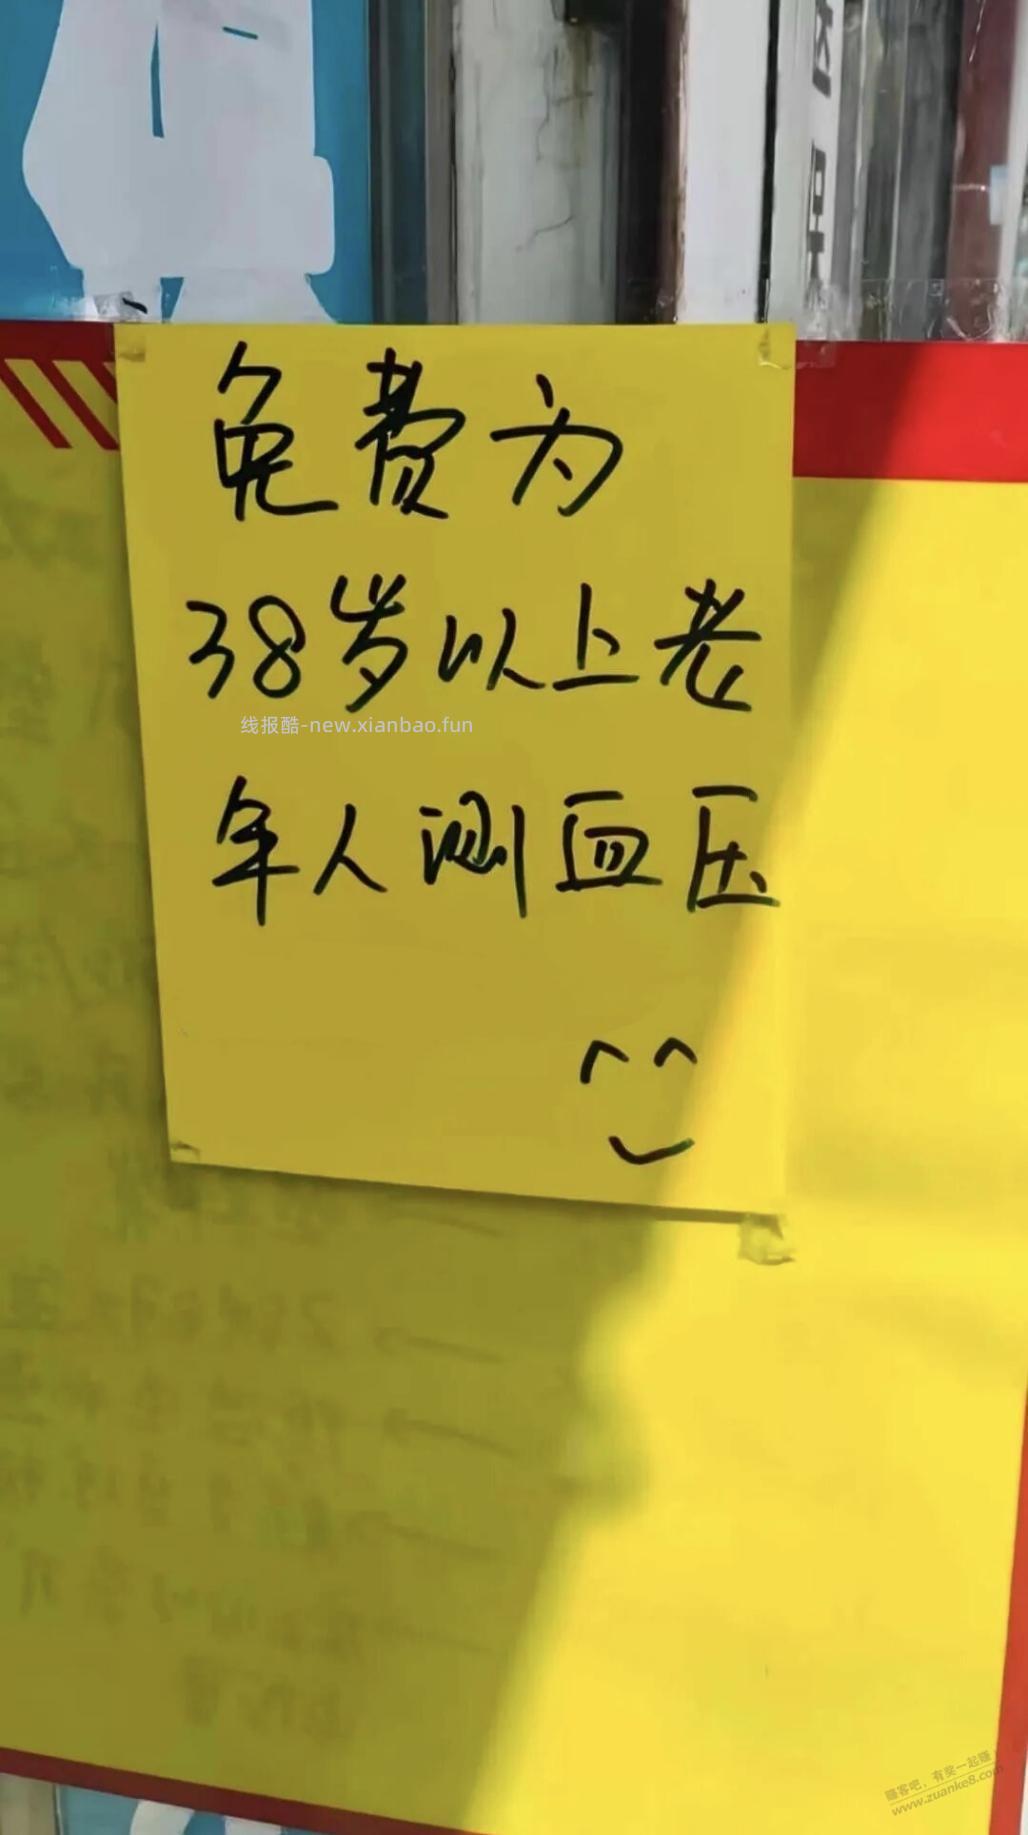 免费为
38岁以上老
线报酷-new.xianbao.fun
年人测血压
赚客吧，有奖一起赚！
www.zuanke8.com